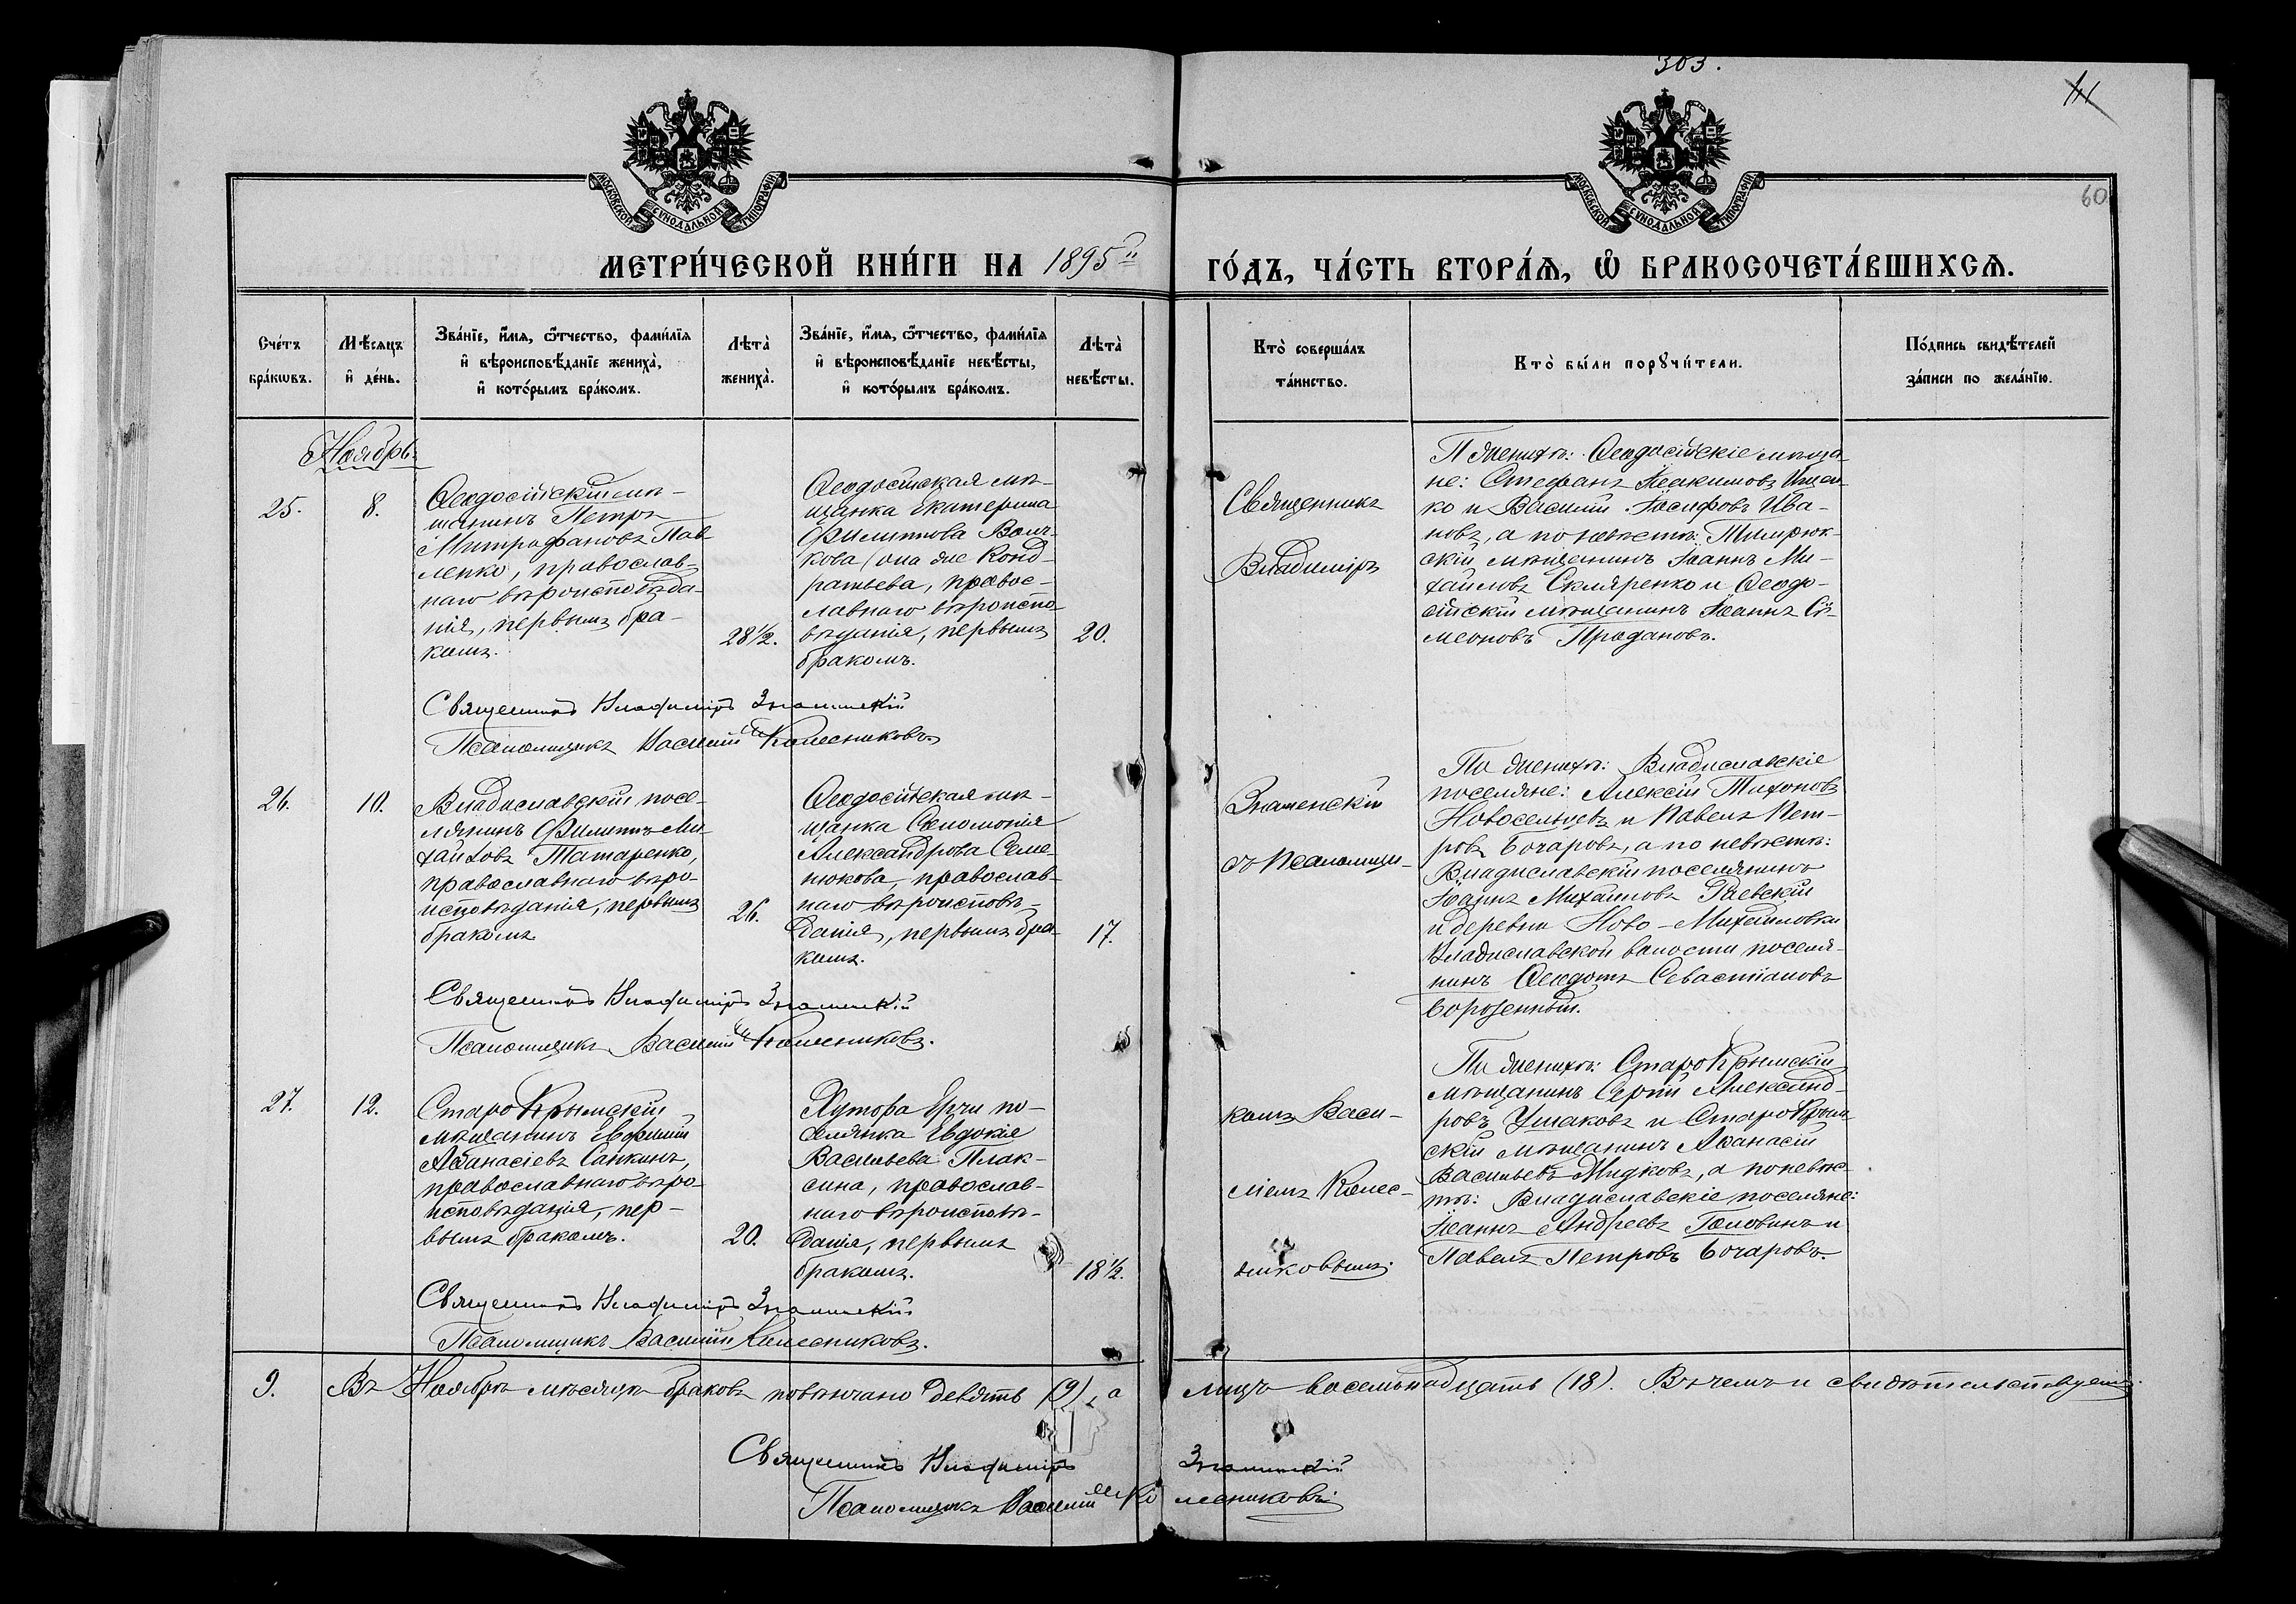 303.
111
60
МОСКОВСКОЙ СѴНОДАЛЬНОЙ ТИПОГРАФІИ
МОСКОВСКОЙ СѴНОДАЛЬНОЙ ТИПОГРАФІИ
МЕТРИ́ЧЕСКОЙ КНИ́ГИ НА 1895й ГО́ДЪ, ЧА́СТЬ ВТОРА́Ѧ, Ѽ БРАКОСОЧЕТА́ВШИХСѦ.
Сче́тъ
бра́кωвъ.
Мѣ́сяцъ
и҆ де́нь.
Зва́нїе, и҆́мя, ѻ҆́тчество, фами́лїя
и҆ вѣроисповѣ́данїе жениха̀,
и҆ кото́рымъ бра́комъ.
Лѣта̀
жениха̀.
Зва́нїе, и҆́мя, ѻ҆́тчество, фами́лїя
и҆ вѣроисповѣ́данїе невѣ́сты,
и҆ кото́рымъ бра́комъ.
Лѣта̀
невѣ́сты.
Кто̀ соверша́лъ
та́инство.
Кто̀ бы́ли порꙋчи́тели.
По́дпись свидѣ́телей
за́писи по жела́нїю.
Ноябрь
25.
8.
Ѳеодосійскій мѣ-
щанинъ Петръ
Митрофановъ Пав-
ленко, православ-
наго вѣроисповѣда-
нія, первымъ бра-
комъ.
28½.
Ѳеодосійская мѣ-
щанка Екатерина
Филиппова Волч-
кова (она же Конд-
ратьева, правос-
лавнаго вѣроиспо-
вѣданія, первымъ
бракомъ.
20.
Священникъ
Владиміръ
П жениху: Ѳеодосійскіе мѣща-
не: Стефанъ Іоакимовъ Ищен-
ко и Василій Іосифовъ Ива-
новъ, а по невѣстѣ: Темрюк-
скій мѣщанинъ Іоаннъ Ми-
хаиловъ Скляренко и Ѳеодо-
сійскій мѣщанинъ Іоаннъ Си-
меоновъ Продановъ.
Священникъ Владиміръ Знаменскій
Псаломщикъ Василій Колесниковъ.
26.
10.
Владиславскій посе-
лянинъ Филиппъ Ми-
хаиловъ Татаренко,
православнаго вѣро-
исповѣданія, первымъ
бракомъ
26.
Ѳеодосійская мѣ-
щанка Соломонія
Александрова Семе-
нюкова, православ-
наго вѣроисповѣ-
данія, первымъ бра-
комъ.
17.
Знаменскій
съ псаломщи-
По жениху: Владиславскіе
поселяне: Алексій Тихоновъ
Новосельцевъ и Павелъ Пет-
ровъ Бочаровъ, а по невѣстѣ:
Владиславскій поселянинъ
Іоаннъ Михаиловъ Раевскій
и деревни Ново-Михайловки
Владиславской волости поселя-
нинъ Ѳеодотъ Севастіановъ
Борозенный.
Священникъ Владиміръ Знаменскій
Псаломщикъ Василій Колесниковъ.
27.
12.
СтароКрымскій
мѣщанинъ Евфимій
Аѳанасіевъ Санкинъ,
православнаго вѣро-
исповѣданія, пер-
вымъ бракомъ.
20.
Хутора Ерчи по-
селянка Евдокія
Васильева Плак-
сина, православ-
наго вѣроисповѣ-
данія, первымъ
бракомъ.
18½.
комъ Васи-
ліемъ Колес-
никовымъ.
По жениху: СтароКрымскій
мѣщанинъ Сергій Александ-
ровъ Ушаковъ и СтароКрым-
скій мѣщанинъ Аѳанасій
Васильевъ Жидковъ, а по невѣс-
тѣ: Владиславскіе поселяне:
Іоаннъ Андреевъ Головинъ и
Павелъ Петровъ Бочаровъ.
Священникъ Владиміръ Знаменскій
Псаломщикъ Василій Колесниковъ.
9.
Въ Ноябрѣ мѣсяцѣ браковъ повѣнчано девять (9), а лицъ восемьнадцать (18). Въ чемъ и свидѣтельствуемъ.
Священникъ Владиміръ Знаменскій
Псаломщикъ Василій Колесниковъ.